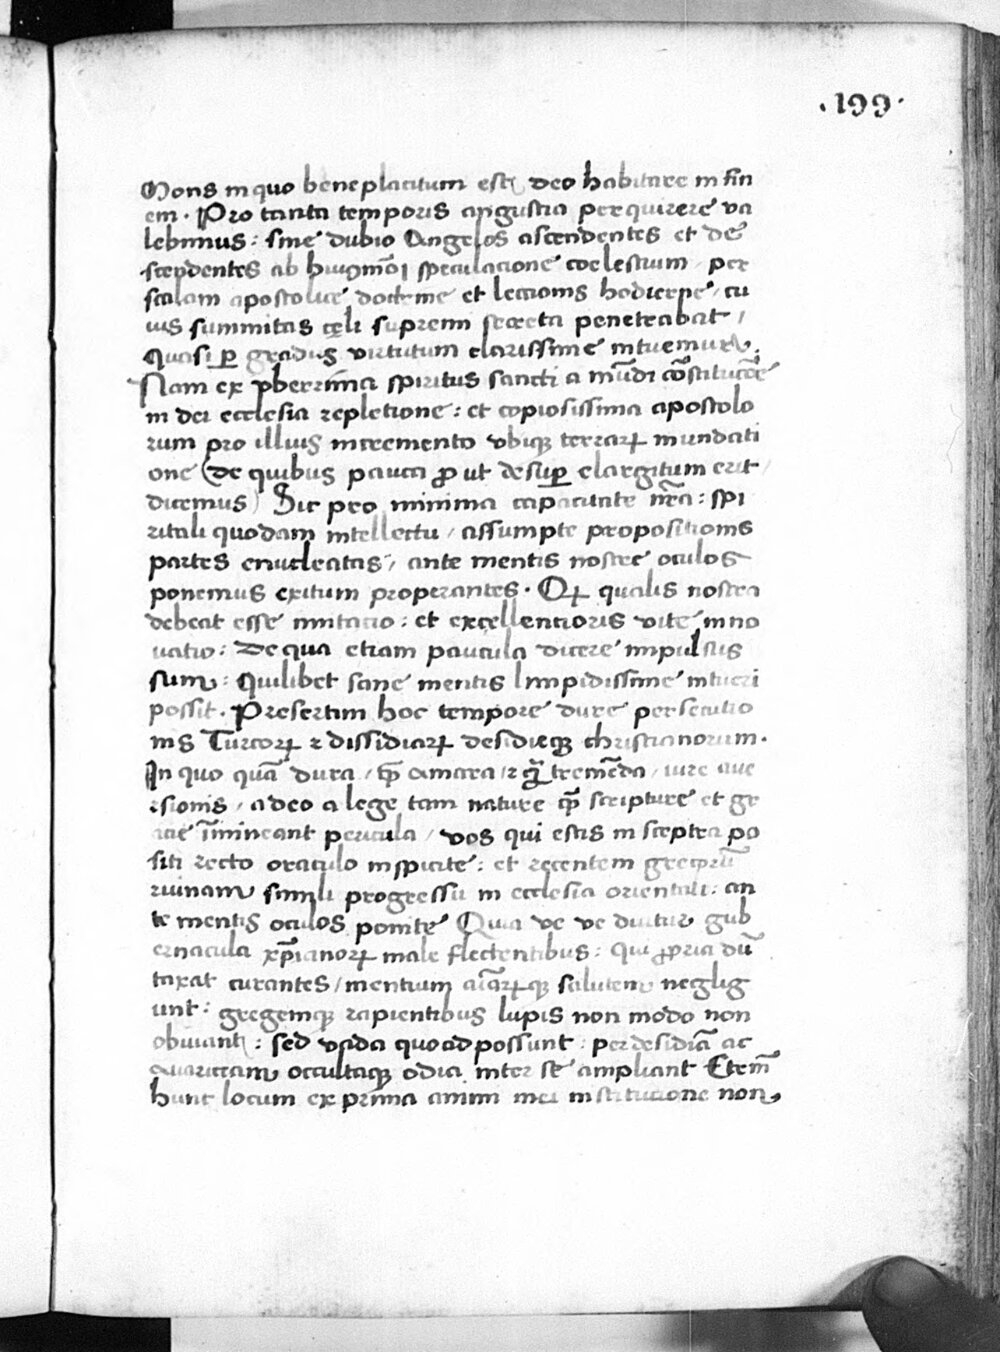 .199.
Mons in quo beneplacitum est deo habitare in fin
em. Pro tanta temporis angustia perquirere va
lebimus: sine dubio Angelos ascendentes et de
scendentes ab huiꝰmōi speculacione coelestium / per
scalam apostolice doctrine et lectionis hodierne / cu
ius summitas cęli supremi secreta penetrabat /
Quasi ꝑ gradus virtutum clarissime intuemur.
Nam ex vberrima spiritus sancti a mūdi cōstitucōe
in dei ecclesia repletione: et copiosissima apostolo
rum pro illius incremento vbiqꝫ terrarꝝ mundati
one (de quibus pauca ꝓut desuꝑ elargitum erit /
dicemus) Sic pro minima capacitate nr̄a: spi
ritali quodam intellectu / assumpte propositionis
partes enucleatas / ante mentis nostre oculos
ponemus exitum properantes. Qꝝ qualis nostra
debeat esse imitacio: et excellencioris vite inno
uatio: De qua etiam paucula dicere impulsus
sum: Quilibet sane mentis limpidissime intueri
possit. Presertim hoc tempore dure persecutio
nis Turcorꝝ ⁊ dissidiarꝝ desidieqꝫ christianorum.
In quo quā dura / qꝫ̄ amara / ⁊ qꝫ̄ tremēda / iure aue
rsionis / adeo a lege tam nature qꝫ̄ scripture et gr
acie īmineant pericula / vos qui estis in sceptra po
siti recto oraculo inspicite: et recentem grecorū
ruinam simili progressu in ecclesia orientali: an
te mentis oculos ponite Quia ve ve dicitur gub
ernacula xp̄ianorꝝ male flectentibus: qui ꝓpria dū
taxat curantes / mentium aīarꝝqꝫ salutem neglig
unt: gregemqꝫ rapientibus lupis non modo non
obuiant: sed vada quoad possunt: per desidiā ac
auariciam occultaqꝫ odia inter se ampliant Etenī
hunc locum ex prima animi mei institucione non